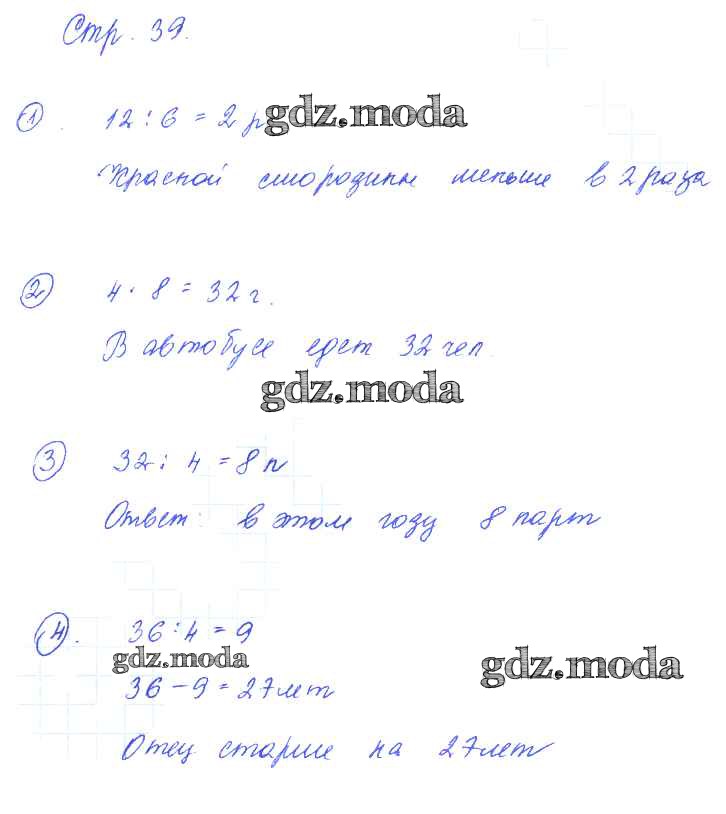 Стр. 39.
1. 12 : 6 = 2 р
gdz.moda
Красной смородины меньше в 2 раза
2 4 · 8 = 32 г.
В автобусе едет 32 чел.
gdz.moda
3 32 : 4 = 8 п
Ответ: в этом году 8 парт
4. 36 : 4 = 9
gdz.moda
gdz.moda
36 - 9 = 27 лет
Отец старше на 27 лет